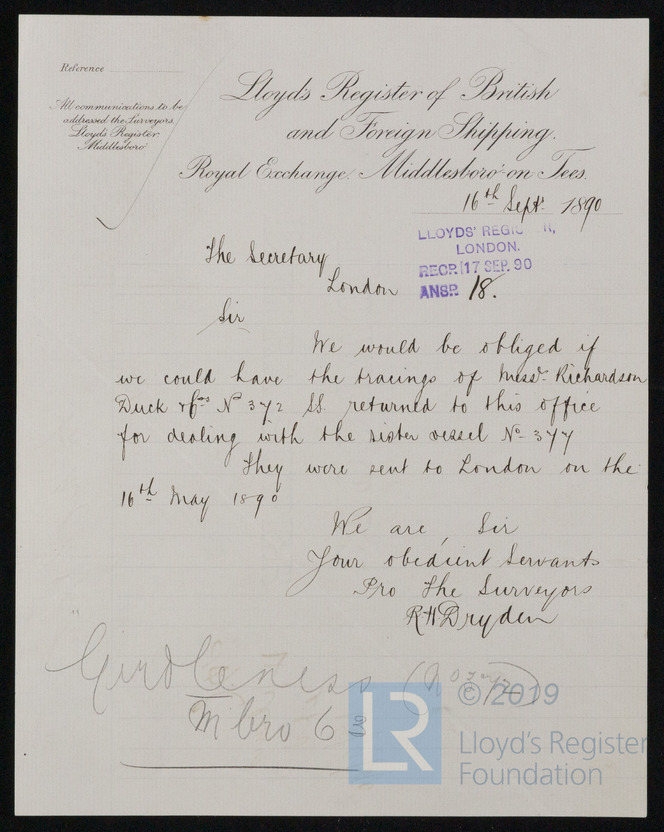 Reference
All communications to be
addressed the Surveyors,
Lloyd's Register,
Middlesboro'
Lloyd's Register of British
and Foreign Shipping.
Royal Exchange. Middlesboro'-on-Tees.
16th Sept. 1890
LLOYDS' REGIS R,
LONDON.
RECD. 17 SEP. 90
ANSD. 18.
The Secretary
London
Sir
We would be obliged if
we could have the tracings of Messrs. Richardson
Duck & Cos No 372 SS. returned to this office
for dealing with the sister vessel No 377
They were sent to London on the
16th May 1890
We are, Sir
Your obedient Servants
Pro The Surveyors
R H Dryden
Girdleness (No 372)
Mbro 6
LR
© 2019
Lloyd's Register
Foundation